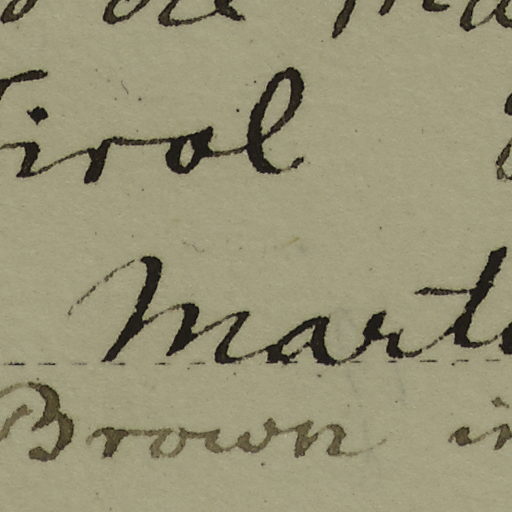 Tirol
Mart
Brown in